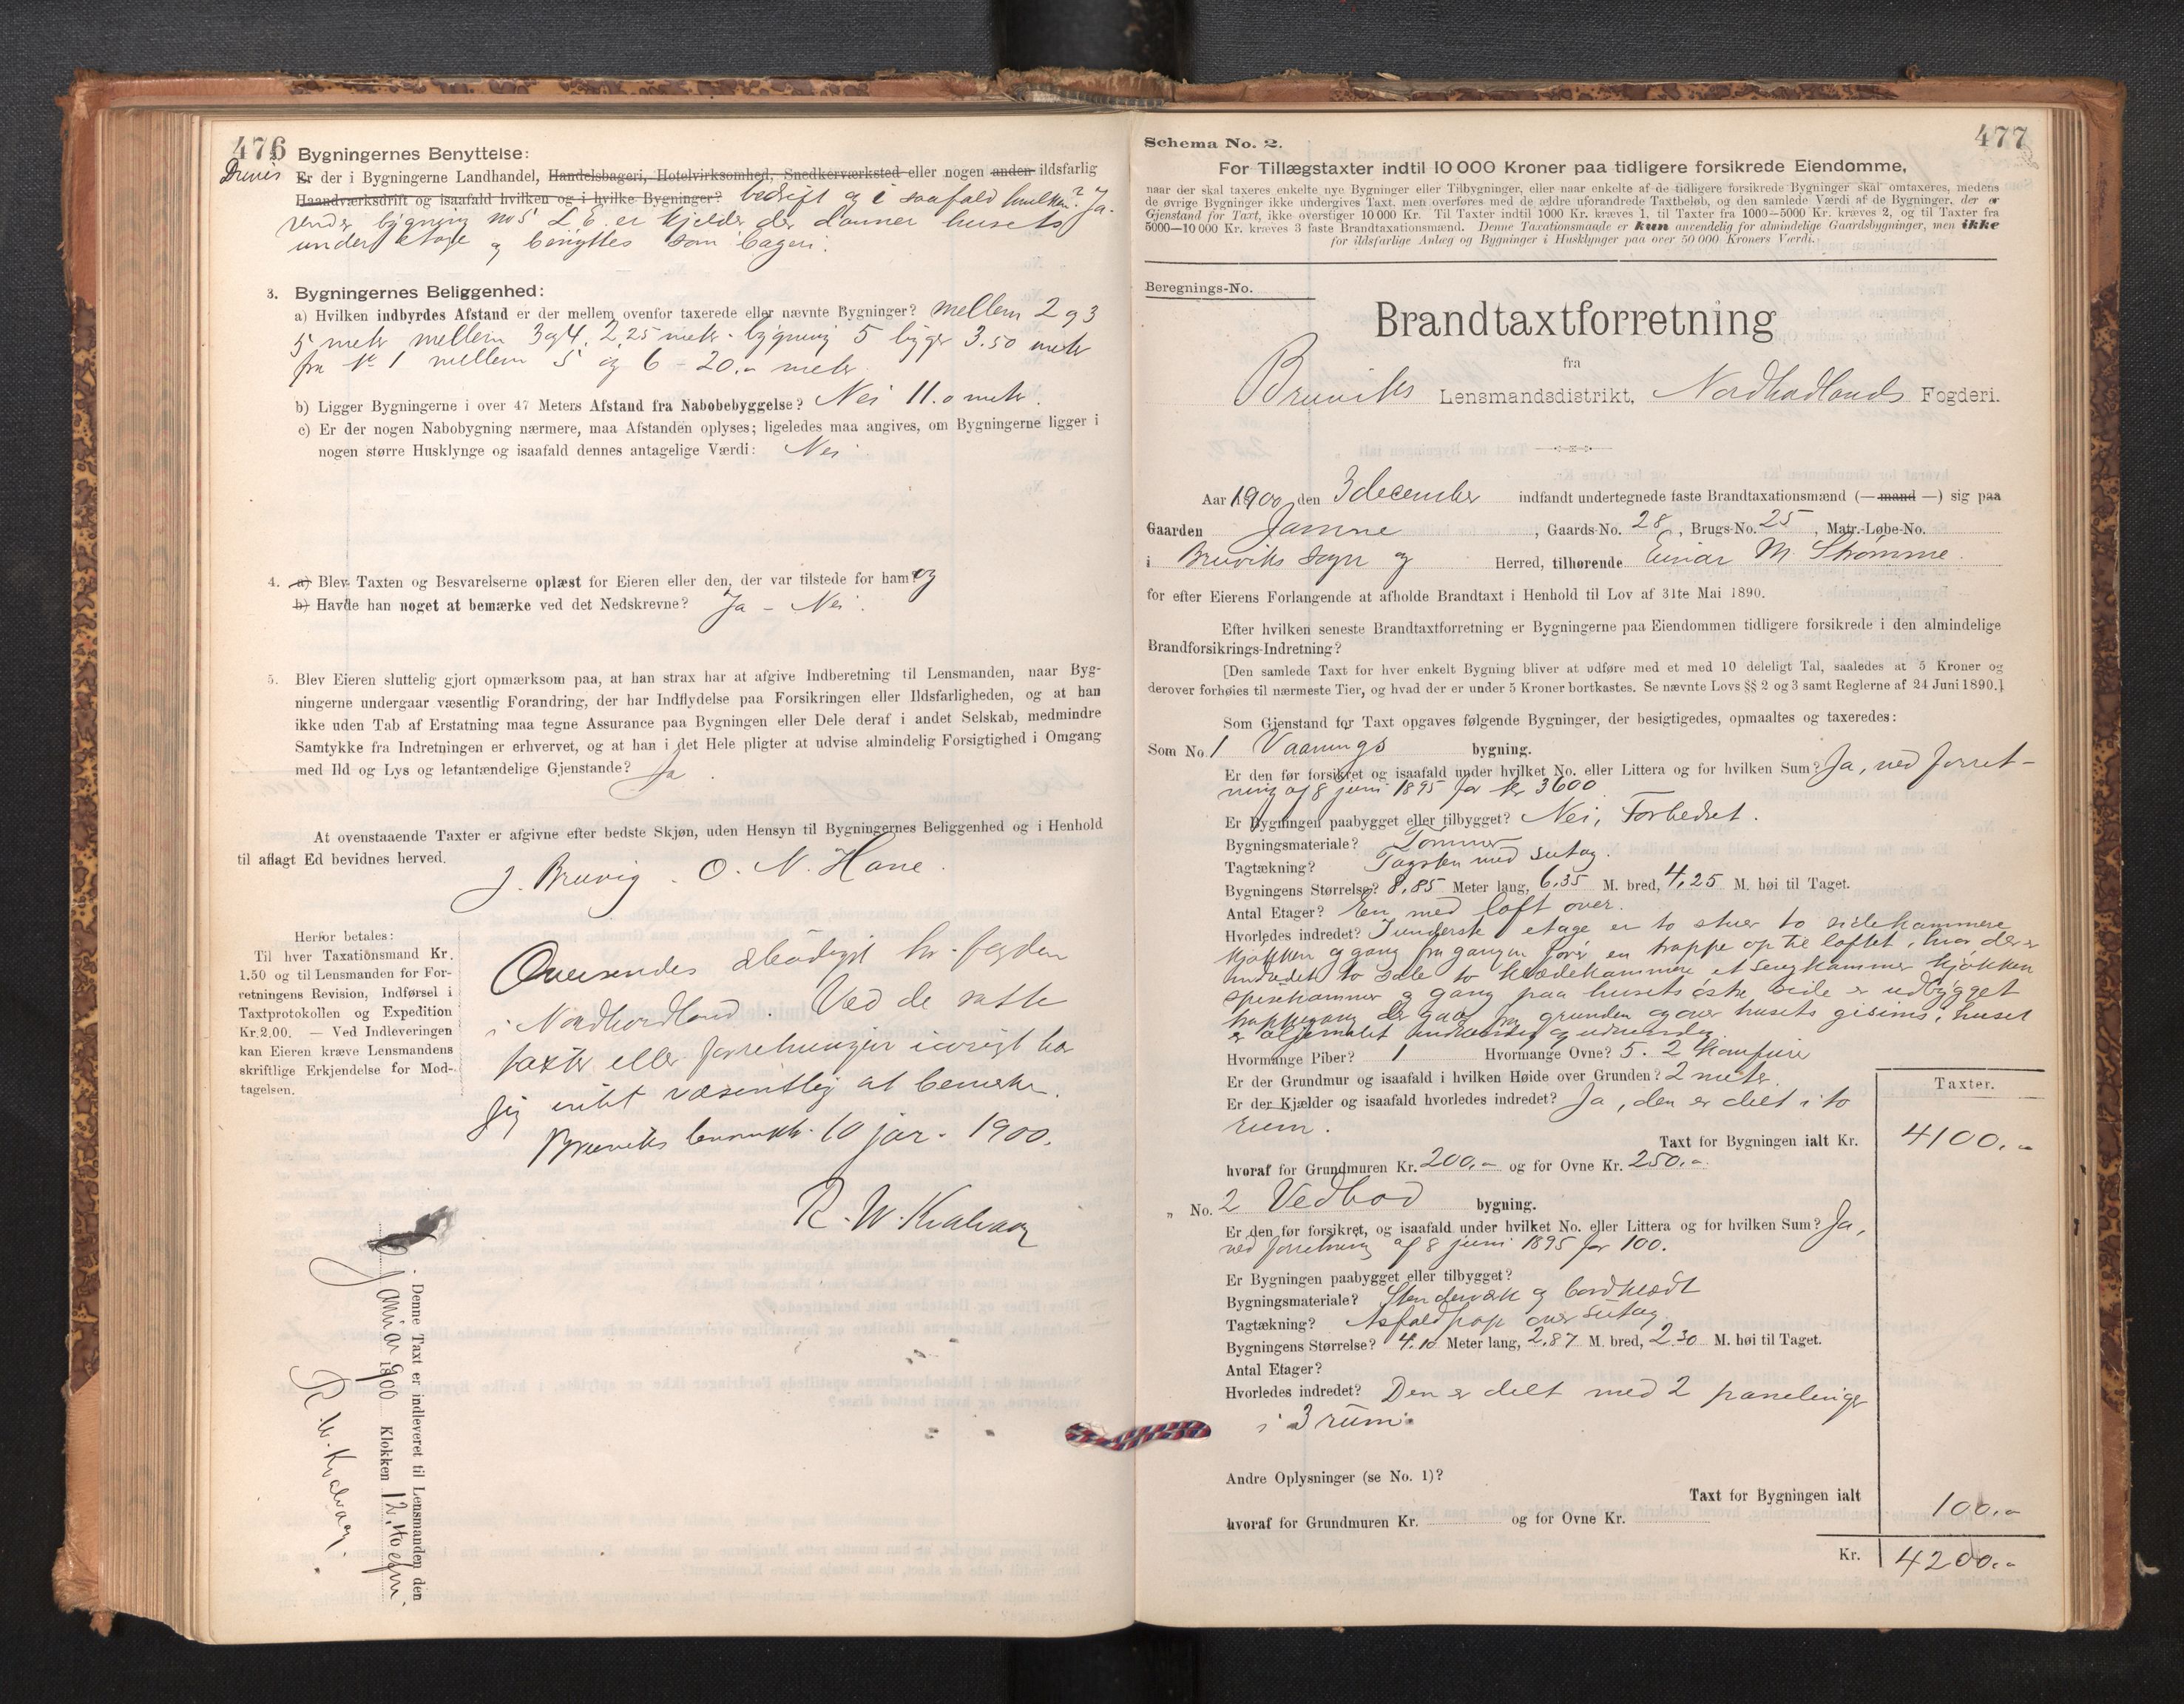 476
Bygningernes Benyttelse:
Drives
Er der i Bygningerne Landhandel, Handelsbageri, Hotelvirksomhed, Snedkerværksted eller nogen anden ildsfarlig
Haandværksdrift og isaafald hvilken og i hvilke Bygninger? bedrift og i saafald hvilken? Ja.
under bygning no 5 L. E. er kjelder der danner husets
under etage og benyttes som bageri.
3. Bygningernes Beliggenhed:
a) Hvilken indbyrdes Afstand er der mellem ovenfor taxerede eller nævnte Bygninger? mellem 2 og 3
5 meter mellem 3 og 4. 2,25 meter - bygning 5 ligger 3.50 meter
fra No 1 mellem 5 og 6 - 20.- meter.
b) Ligger Bygningerne i over 47 Meters Afstand fra Nabobebyggelse? Nei 11.0 meter.
c) Er der nogen Nabobygning nærmere, maa Afstanden oplyses; ligeledes maa angives, om Bygningerne ligger i
nogen større Husklynge og isaafald dennes antagelige Værdi: Nei
4. a) Blev Taxten og Besvarelserne oplæst for Eieren eller den, der var tilstede for ham? og
b) Havde han noget at bemærke ved det Nedskrevne? Ja - Nei.
5. Blev Eieren sluttelig gjort opmærksom paa, at han strax har at afgive Indberetning til Lensmanden, naar Byg-
ningerne undergaar væsentlig Forandring, der har Indflydelse paa Forsikringen eller Ildsfarligheden, og at han
ikke uden Tab af Erstatning maa tegne Assurance paa Bygningen eller Dele deraf i andet Selskab, medmindre
Samtykke fra Indretningen er erhvervet, og at han i det Hele pligter at udvise almindelig Forsigtighed i Omgang
med Ild og Lys og letantændelige Gjenstande? Ja.
At ovenstaaende Taxter er afgivne efter bedste Skjøn, uden Hensyn til Bygningernes Beliggenhed og i Henhold
til aflagt Ed bevidnes herved.
J. Bruvig. O. N. Hane.
Herfor betales:
Til hver Taxationsmand Kr.
1.50 og til Lensmanden for For-
retningens Revision, Indførsel i
Taxtprotokollen og Expedition
Kr. 2.00. — Ved Indleveringen
kan Eieren kræve Lensmandens
skriftlige Erkjendelse for Mod-
tagelsen.
Oversendes ærbødigst hr. fogden
i Nordhordland. Ved de satte
taxter eller forretningen iøvrigt har
jeg intet væsentlig at bemerke.
Bruviks 10 jar. 1900.
R. W. Kvalvaag
Denne Taxt er indleveret til Lensmanden den
Januar 1900 Klokken 12, 40 efm.
R. W. Kvalvaag.
477
Schema No. 2.
For Tillægstaxter indtil 10 000 Kroner paa tidligere forsikrede Eiendomme,
naar der skal taxeres enkelte nye Bygninger eller Tilbygninger, eller naar enkelte af de tidligere forsikrede Bygninger skal omtaxeres, medens
de øvrige Bygninger ikke undergives Taxt, men overføres med de ældre uforandrede Taxtbeløb, og den samlede Værdi af de Bygninger, der er
Gjenstand for Taxt, ikke overstiger 10 000 Kr. Til Taxter indtil 1000 Kr. kræves 1, til Taxter fra 1000—5000 Kr. kræves 2, og til Taxter fra
5000—10 000 Kr. kræves 3 faste Brandtaxationsmænd. Denne Taxationsmaade er kun anvendelig for almindelige Gaardsbygninger, men ikke
for ildsfarlige Anlæg og Bygninger i Husklynger paa over 50 000 Kroners Værdi.
Beregnings-No.
Brandtaxtforretning
fra
Bruviks Lensmandsdistrikt, Nordhordlands Fogderi.
Aar 1900, den 3 december indfandt undertegnede faste Brandtaxationsmænd (— mand —) sig paa
Gaarden Jamne, Gaards-No. 28, Brugs-No. 25, Matr.-Løbe-No.
i Bruviks sogn og Herred, tilhørende Einar M. Strømme.
for efter Eierens Forlangende at afholde Brandtaxt i Henhold til Lov af 31te Mai 1890.
Efter hvilken seneste Brandtaxtforretning er Bygningerne paa Eiendommen tidligere forsikrede i den almindelige
Brandforsikrings-Indretning?
[Den samlede Taxt for hver enkelt Bygning bliver at udføre med et med 10 deleligt Tal, saaledes at 5 Kroner og
derover forhøies til nærmeste Tier, og hvad der er under 5 Kroner bortkastes. Se nævnte Lovs §§ 2 og 3 samt Reglerne af 24 Juni 1890.]
Som Gjenstand for Taxt opgaves følgende Bygninger, der besigtigedes, opmaaltes og taxeredes:
Som No. 1 Vaanings bygning.
Er den før forsikret og isaafald under hvilket No. eller Littera og for hvilken Sum? Ja, ved forret-
ning af 8 juni 1895 for kr 3600
Er Bygningen paabygget eller tilbygget? Nei, Forbedret.
Bygningsmateriale? Tømmer
Tagtækning? Tagsten med sutag.
Bygningens Størrelse? 8,85 Meter lang, 6,35 M. bred, 4,25 M. høi til Taget.
Antal Etager? En med loft over.
Hvorledes indredet? I underste etage er to stuer to sidekammere
kjøkken og gang fra gangen fører en trappe op til loftet, hvor der er
indredet to sale to klædekammere et sengkammer kjøkken
spisekammer og gang paa husets øste side er udbygget
trappegang der gaar fra grunden og over husets gisims. huset
er oljemalet indvendig og udvendig.
Hvormange Piber? 1 Hvormange Ovne? 5. 2 Komfuire
Er der Grundmur og isaafald i hvilken Høide over Grunden? 2 meter.
Er der Kjælder og isaafald hvorledes indredet? Ja, den er delt i to
rum.
Taxter.
Taxt for Bygningen ialt Kr. 4100.-
hvoraf for Grundmuren Kr. 200.- og for Ovne Kr. 250.-
„ No. 2 Vedbod bygning.
Er den før forsikret, og isaafald under hvilket No. eller Littera og for hvilken Sum? Ja,
ved forretning af 8 juni 1895 for 100.
Er Bygningen paabygget eller tilbygget?
Bygningsmateriale? Stenderværk og bordklædt
Tagtækning? Asfaldpap over sutag
Bygningens Størrelse? 4.10 Meter lang, 2,87 M. bred, 2.30 M. høi til Taget.
Antal Etager?
Hvorledes indredet? Den er delt med 2 panelinger
i 3 rum.
Andre Oplysninger (se No. 1)?
Taxt for Bygningen ialt 100.-
hvoraf for Grundmuren Kr. og for Ovne Kr.
Kr. 4200.-